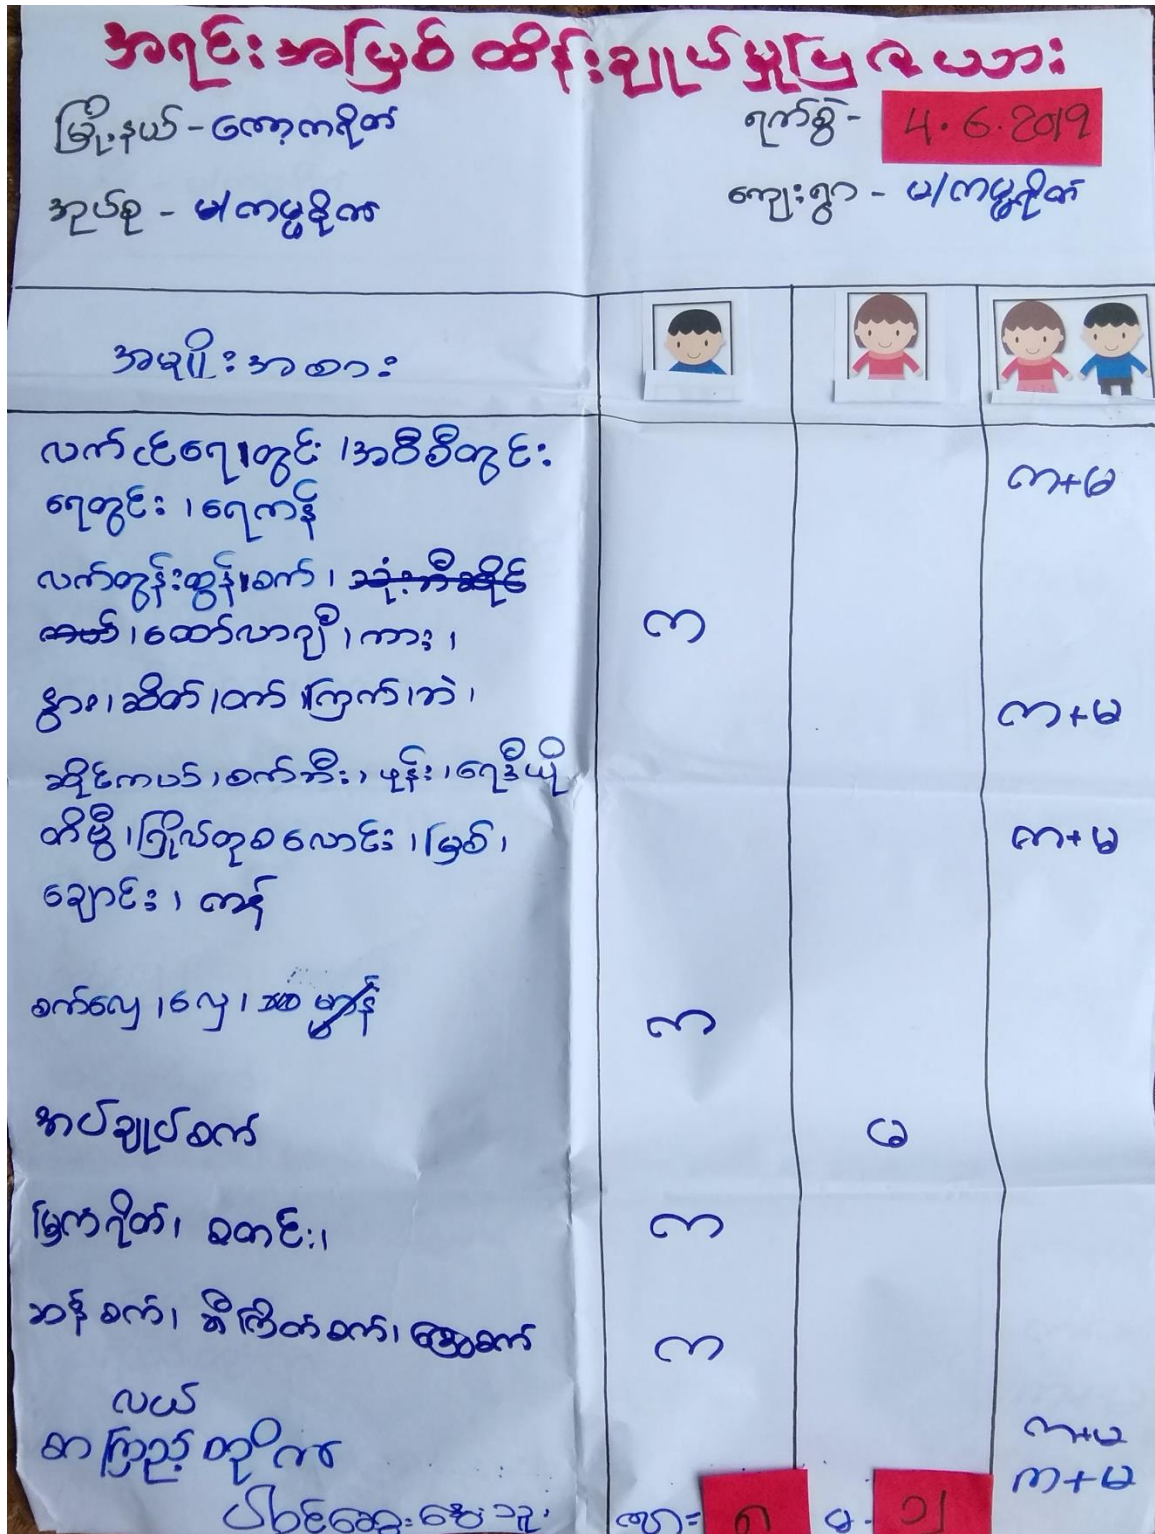 အရင်းအမြစ် ထိန်းချုပ်မှုပြဇယား
မြို့နယ် - ကော့ကရိတ်
ရက်စွဲ - 4.6.2019
အုပ်စု - မ/ကမ္မရိုက်
ကျေးရွာ - မ/ကမ္မရိုက်
အမျိုးအစား
လက်ငင်ရေတွင်း ၊ အဝီစိတွင်း
ရေတွင်း ၊ ရေကန်
က+မ
လက်တွန်းထွန်စက် ၊ သုံးဘီးဆိုင်
ကယ် ၊ ထော်လာဂျီ ၊ ကား ၊
က
နွား ၊ ဆိတ် ၊ ဝက် ၊ ကြက် ၊ ဘဲ ၊
က+မ
ဆိုင်ကယ် ၊ စက်ဘီး ၊ ဖုန်း ၊ ရေဒီယို
တီဗွီ ၊ ဂြိုလ်တုစလောင်း ၊ မြစ် ၊
က+မ
ချောင်း ၊ ကန်
စက်လှေ ၊ လှေ ၊
က
အပ်ချုပ်စက်
မ
မြွက်ရိုတ် ၊ စတင်း ၊
က
ဆန်စက် ၊ ဆီကြိတ်စက် ၊
က
လယ်
က+မ
စာကြည့်တိုက်
က+မ
ပါဝင်ဆွေးနွေးသူ
ကျား = ၅ မ - ၁၅